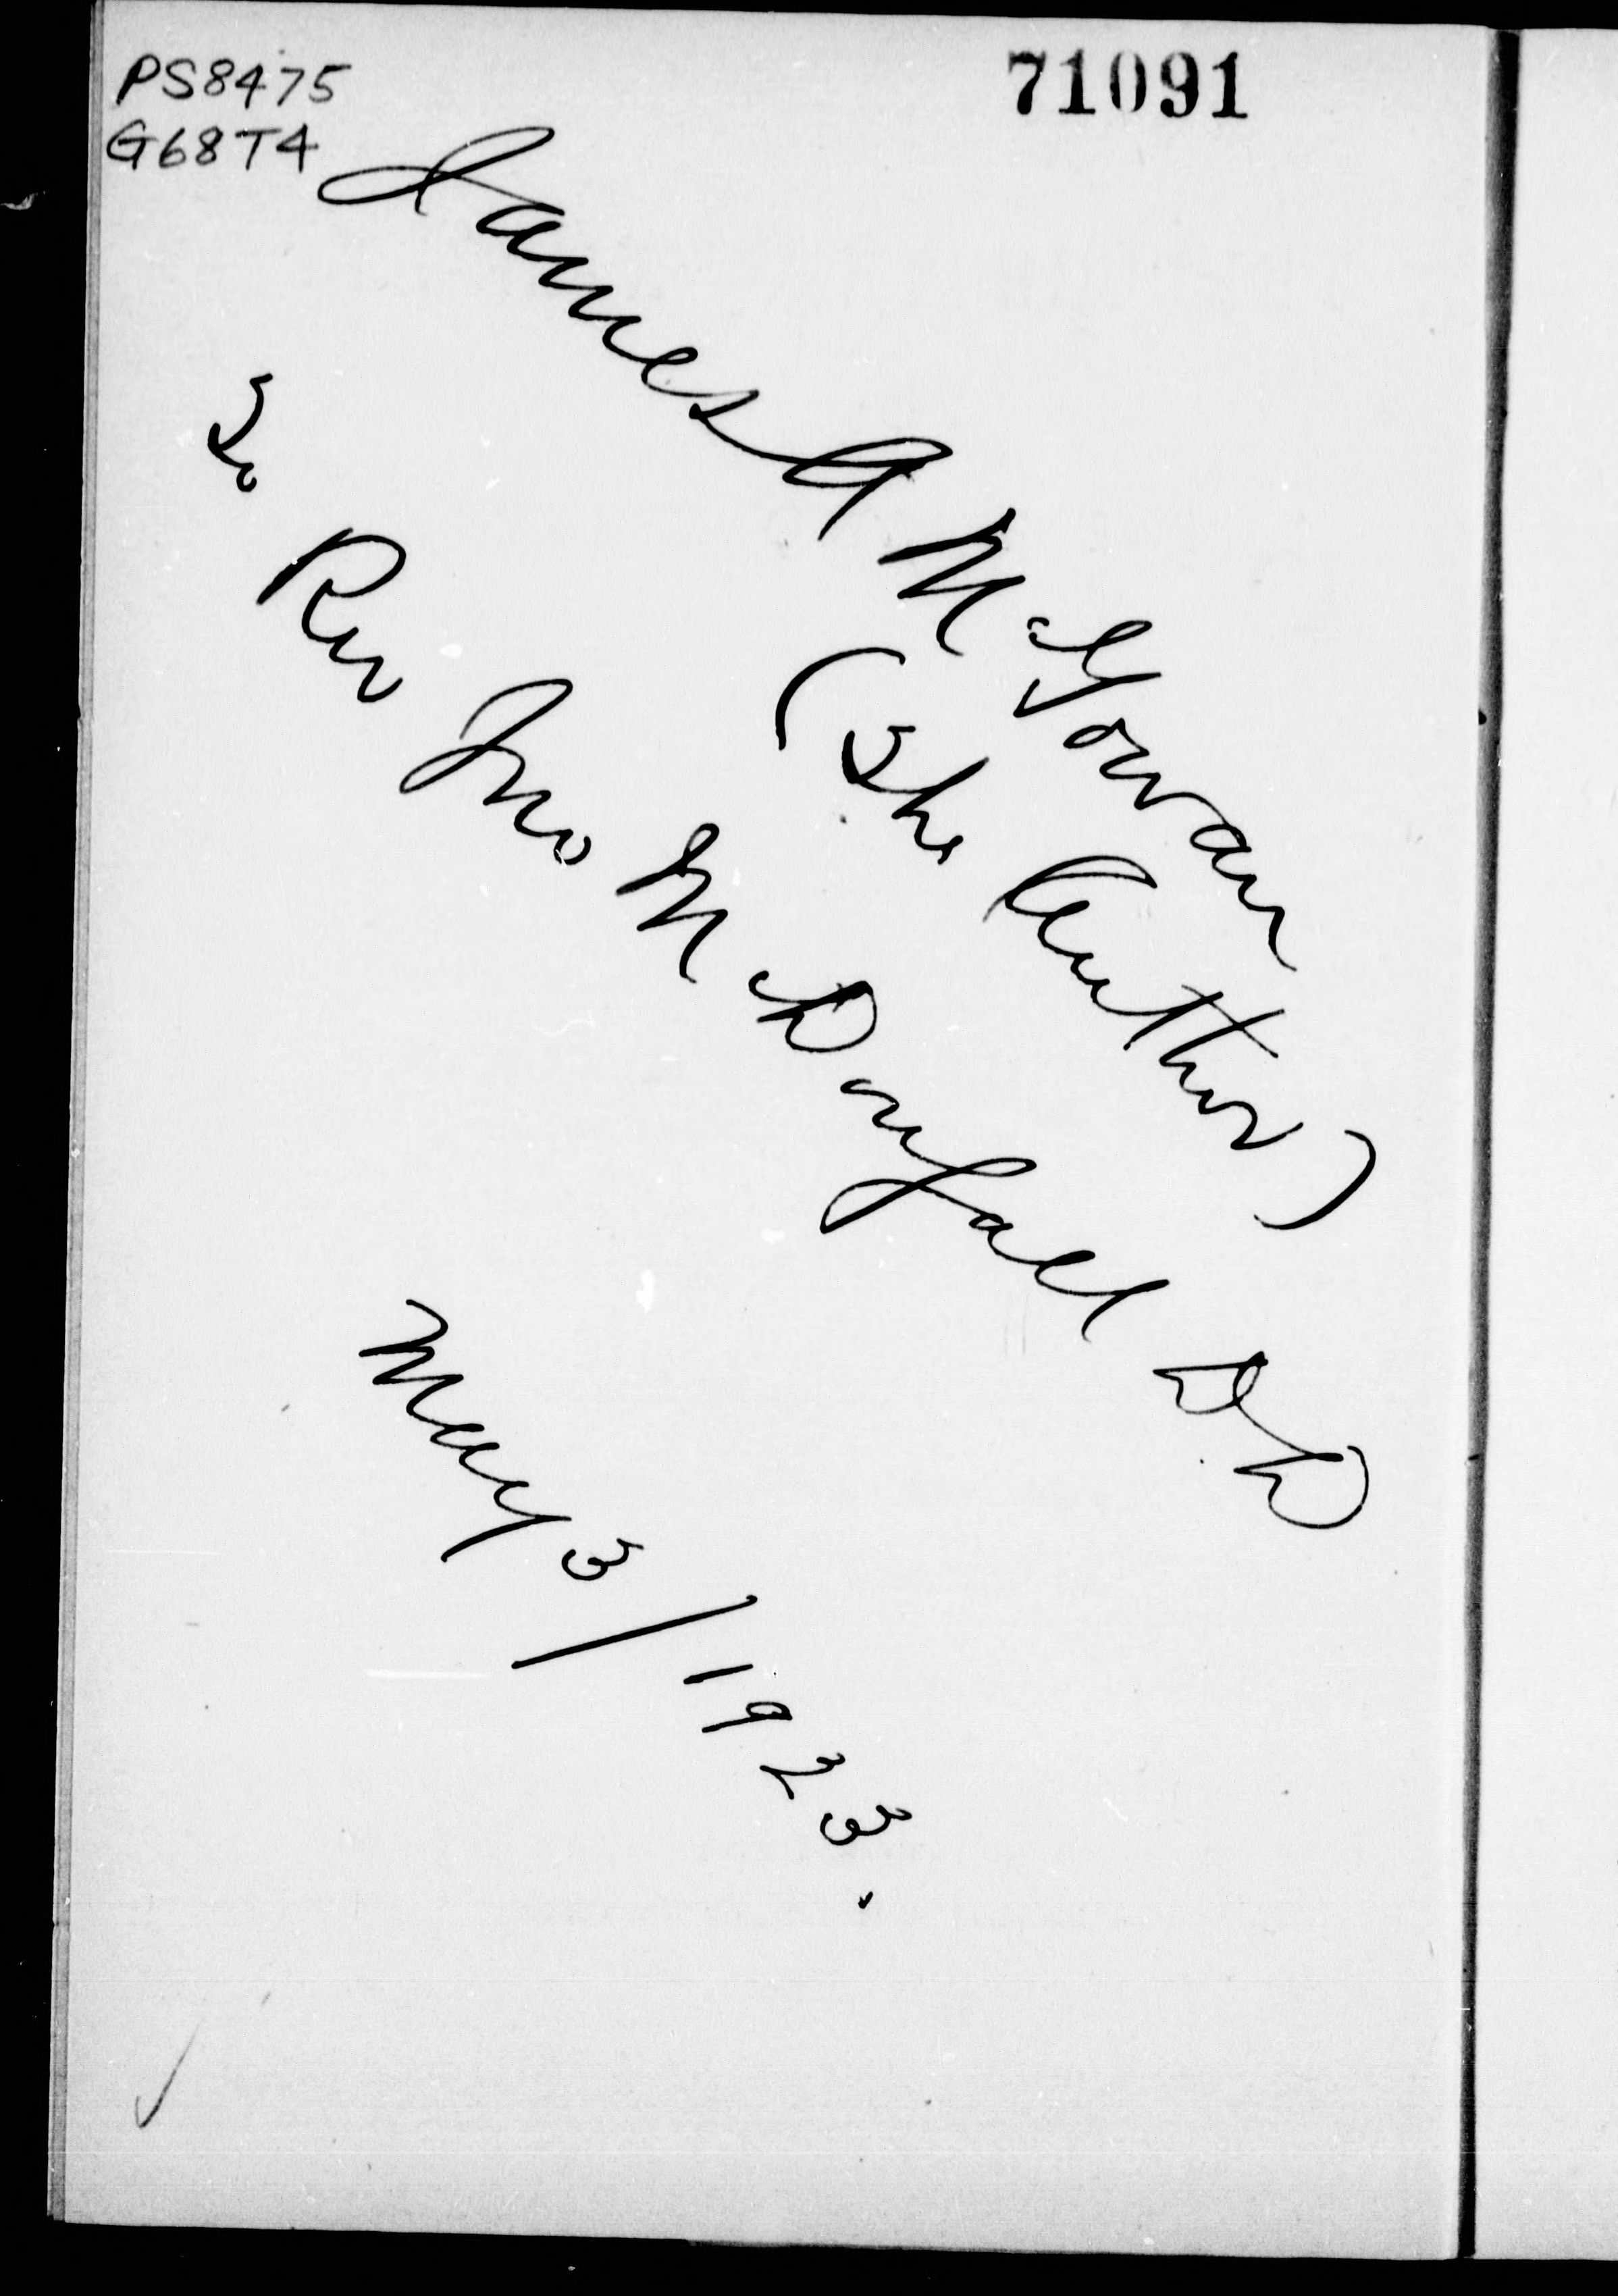 PS8475
G68T4
71091
James A McGowan
(The Author)
To Rev Jno McDougall D.D
May 3/1923.